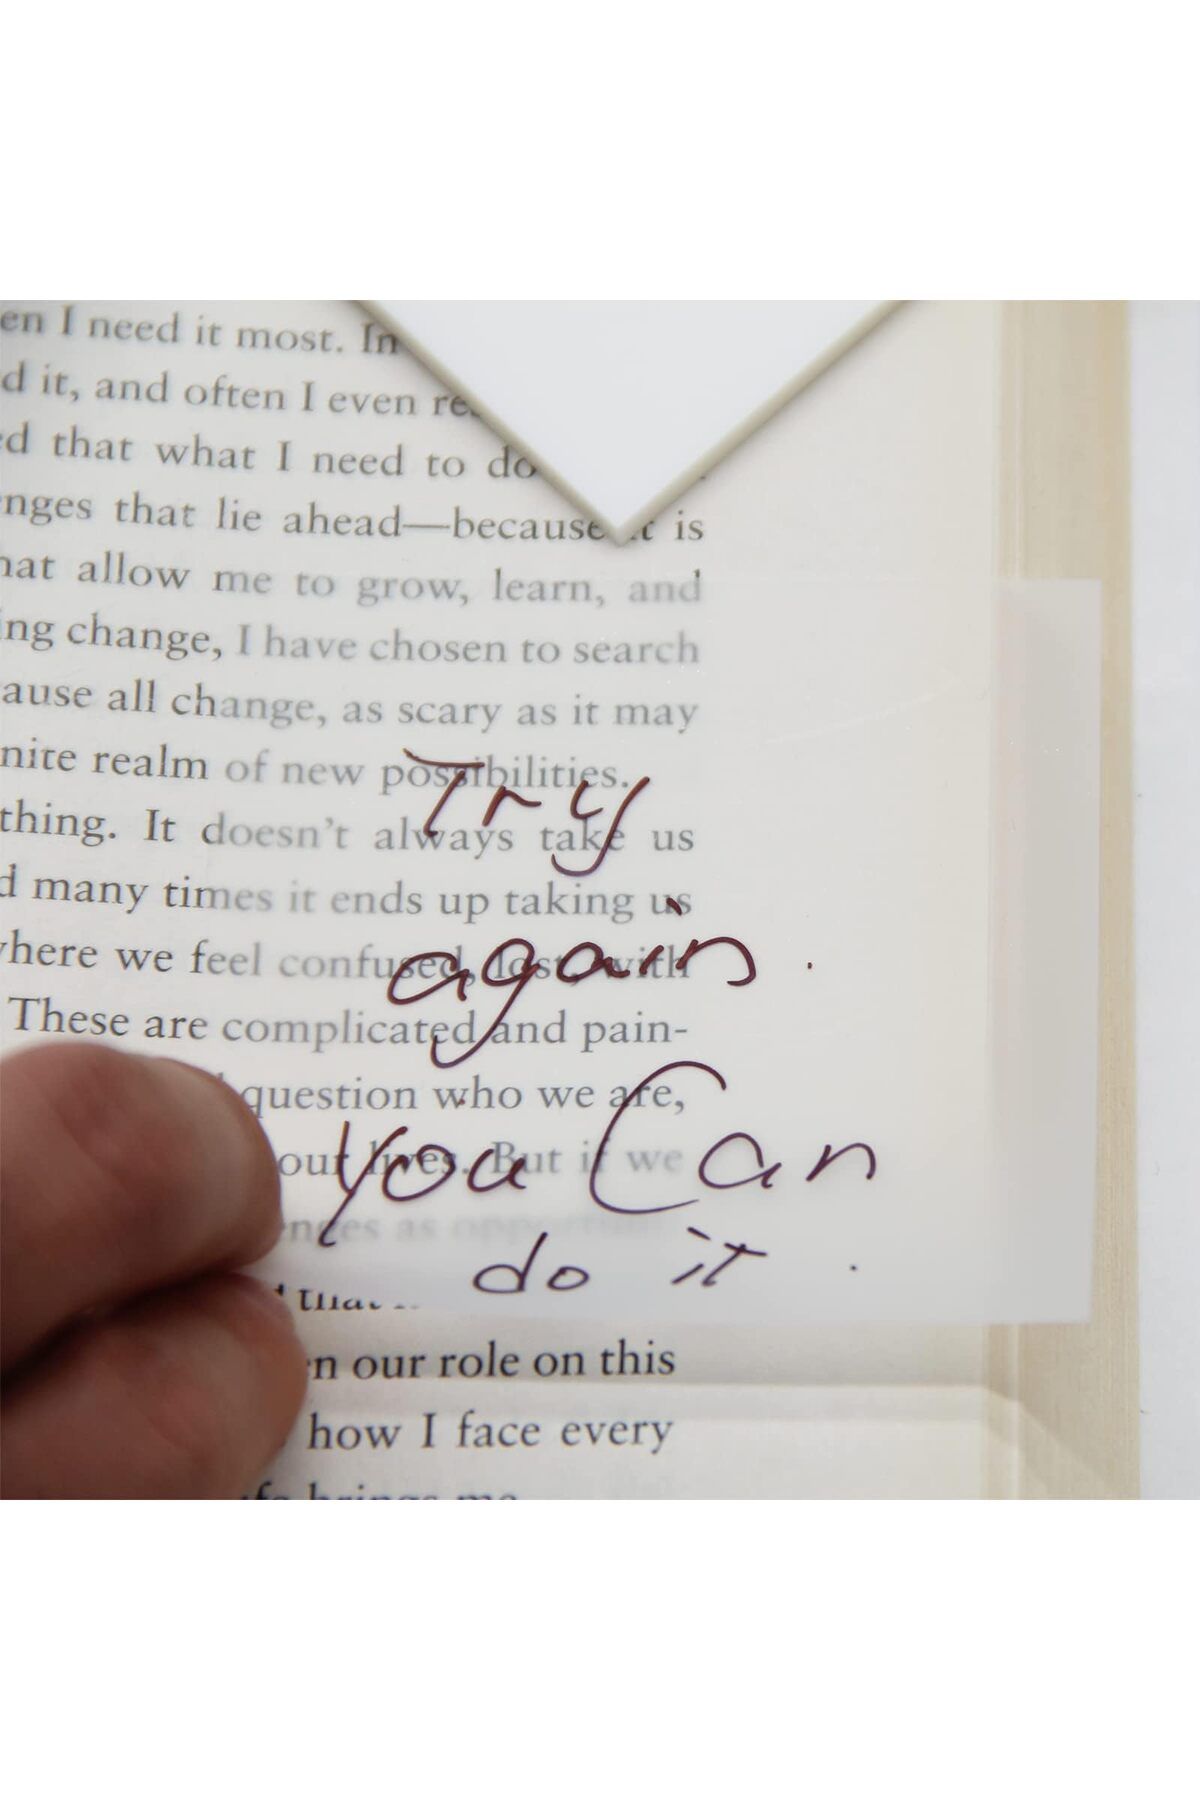 en I need it most. In
d it, and often I even re
ed that what I need to do
nges that lie ahead—because it is
hat allow me to grow, learn, and
ing change, I have chosen to search
ause all change, as scary as it may
nite realm of new possibilities.
Try
thing. It doesn't always take us
d many times it ends up taking us
where we feel confused, lost, with
again.
These are complicated and pain-
question who we are,
our lives. But if we
you Can
enges as
do it.
n our role on this
how I face every
brings me